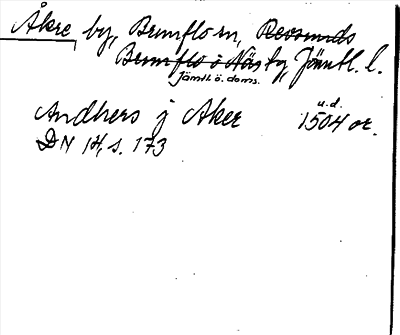 Åkre by, Brunflo sn, Revsunds
Brunflo o Näs tg, Jämtl. l.
Jämtl. ö. doms.
Andhers j Aker 1504 or.
u.d.
DN 14, s. 173